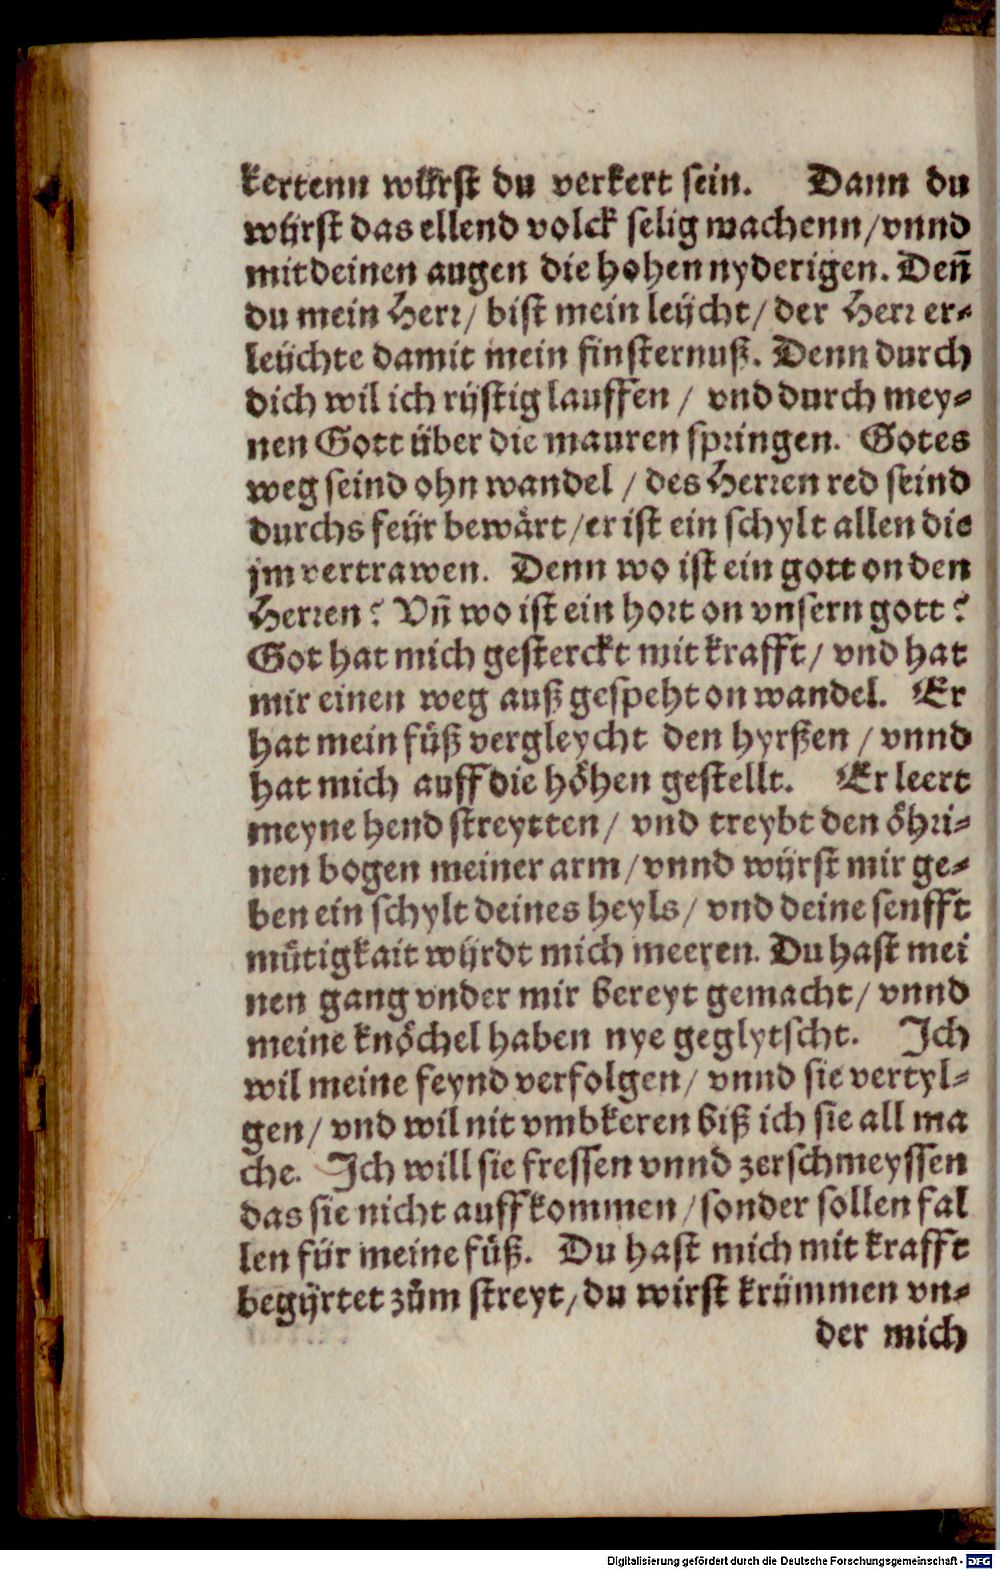 kertenn würst du verkert sein. Dann du
wÿrst das ellend volck selig machenn/vnnd
mit deinen augen die hohen nyderigen. Deñ
du mein Herr/ bist mein leÿcht/ der Herr er-
leÿchte damit mein finsternuß. Denn durch
dich wil ich rÿstig lauffen / vnd durch mey-
nen Gott über die mauren springen. Gotes
weg seind ohn wandel / des Herren red seind
durchs feÿr bewärt/er ist ein schylt allen die
jm vertrawen. Denn wo ist ein gott on den
Herren? Vñ wo ist ein hort on vnsern gott?
Got hat mich gesterckt mit krafft/ vnd hat
mir einen weg auß gespeht on wandel. Er
hat mein fůß vergleycht den hyrßen / vnnd
hat mich auff die höhen gestellt. Er leert
meyne hend streytten/ vnd treybt den öhri-
nen bogen meiner arm/vnnd wÿrst mir ge-
ben ein schylt deines heyls/ vnd deine senfft
mütigkait wÿrdt mich meeren. Du hast mei
nen gang vnder mir bereyt gemacht/ vnnd
meine knöchel haben nye geglytscht. Ich
wil meine feynd verfolgen/ vnnd sie vertyl-
gen/ vnd wil nit vmbkeren biß ich sie all ma
che. Ich will sie fressen vnnd zerschmeyssen
das sie nicht auffkommen/sonder sollen fal
len für meine füß. Du hast mich mit krafft
begÿrtet zům streyt/du wirst krümmen vn-
der mich
Digitalisierung gefördert durch die Deutsche Forschungsgemeinschaft - DFG